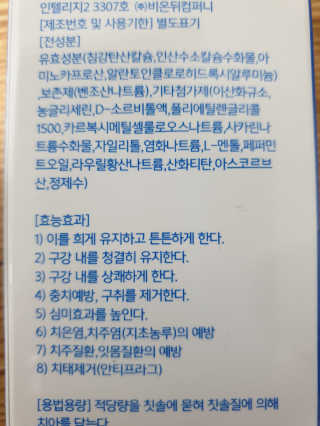 인텔리지2 3307호 ㈜비온뒤컴퍼니
[제조번호 및 사용기한] 별도표기
[전성분]
유효성분(침강탄산칼슘,인산수소칼슘수화물,아
미노카프로산,알란토인클로로히드록시알루미늄)
,보존제(벤조산나트륨),기타첨가제(이산화규소,
농글리세린,D-소르비톨액,폴리에틸렌글리콜
1500,카르복시메틸셀룰로오스나트륨,사카린나
트륨수화물,자일리톨,염화나트륨,L-멘톨,페퍼민
트오일,라우릴황산나트륨,산화티탄,아스코르브
산,정제수)
[효능효과]
1) 이를 희게 유지하고 튼튼하게 한다.
2) 구강 내를 청결히 유지한다.
3) 구강 내를 상쾌하게 한다.
4) 충치예방, 구취를 제거한다.
5) 심미효과를 높인다.
6) 치은염,치주염(지초농루)의 예방
7) 치주질환,잇몸질환의 예방
8) 치태제거(안티프라그)
[용법용량] 적당량을 칫솔에 묻혀 칫솔질에 의해
치아를 닦는다